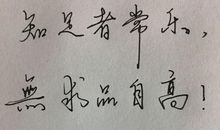 知足者常乐，
無求品自高！